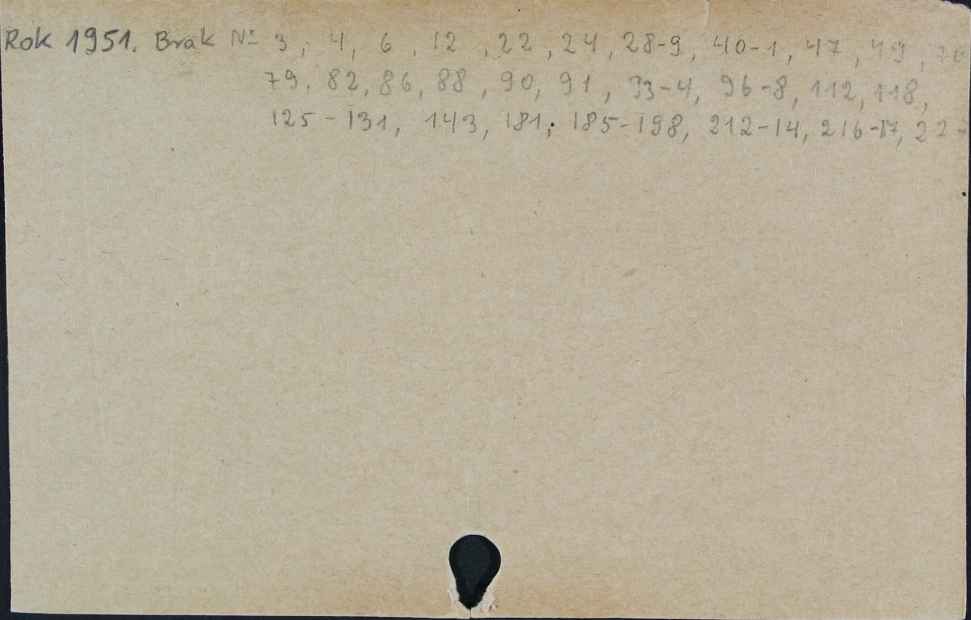 Rok 1951. Brak № 3, 4, 6, 12, 22, 24, 28-9, 40-1, 47, 49,
79, 82, 86, 88, 90, 91, 93-4, 96-8, 112, 118,
125-131, 143, 181, 185-198, 212-14, 216-17,